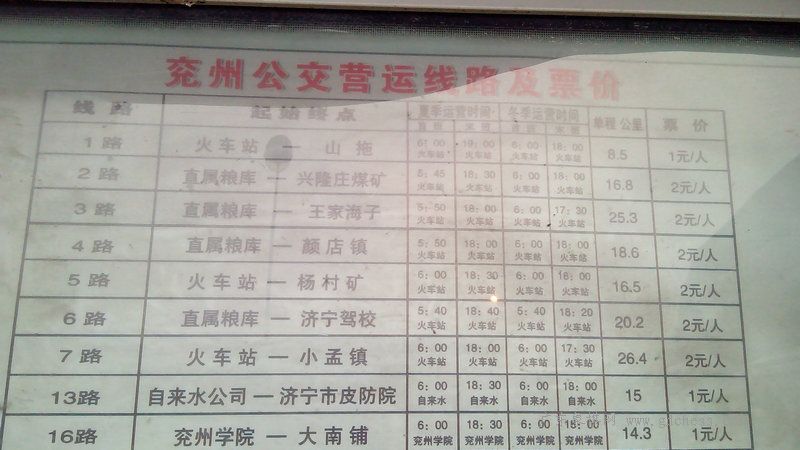 兖州公交营运线路及票价
线路 起始终点 夏季运营时间 冬季运营时间 单程 公里 票价
首班 末班 首班 末班
1路 火车站 — 山拖 6:00 19:00 6:00 18:00 8.5 1元/人
火车站 火车站 火车站 火车站
2路 直属粮库 — 兴隆庄煤矿 5:45 18:30 6:00 18:00 16.8 2元/人
火车站 火车站 火车站 火车站
3路 直属粮库 — 王家海子 5:50 18:00 6:00 17:30 25.3 2元/人
火车站 火车站 火车站 火车站
4路 直属粮库 — 颜店镇 5:50 18:00 6:00 18:00 18.6 2元/人
火车站 火车站 火车站 火车站
5路 火车站 — 杨村矿 6:00 18:30 6:00 18:00 16.5 2元/人
火车站 火车站 火车站 火车站
6路 直属粮库 — 济宁驾校 5:40 18:40 5:40 18:20 20.2 2元/人
火车站 火车站 火车站 火车站
7路 火车站 — 小孟镇 6:00 18:40 6:00 17:30 26.4 2元/人
火车站 火车站 火车站 火车站
13路 自来水公司 — 济宁市皮防院 6:00 18:30 6:00 18:00 15 1元/人
自来水 自来水 自来水 自来水
16路 兖州学院 — 大南铺 6:00 18:30 6:00 18:00 14.3 1元/人
兖州学院 兖州学院 兖州学院 兖州学院